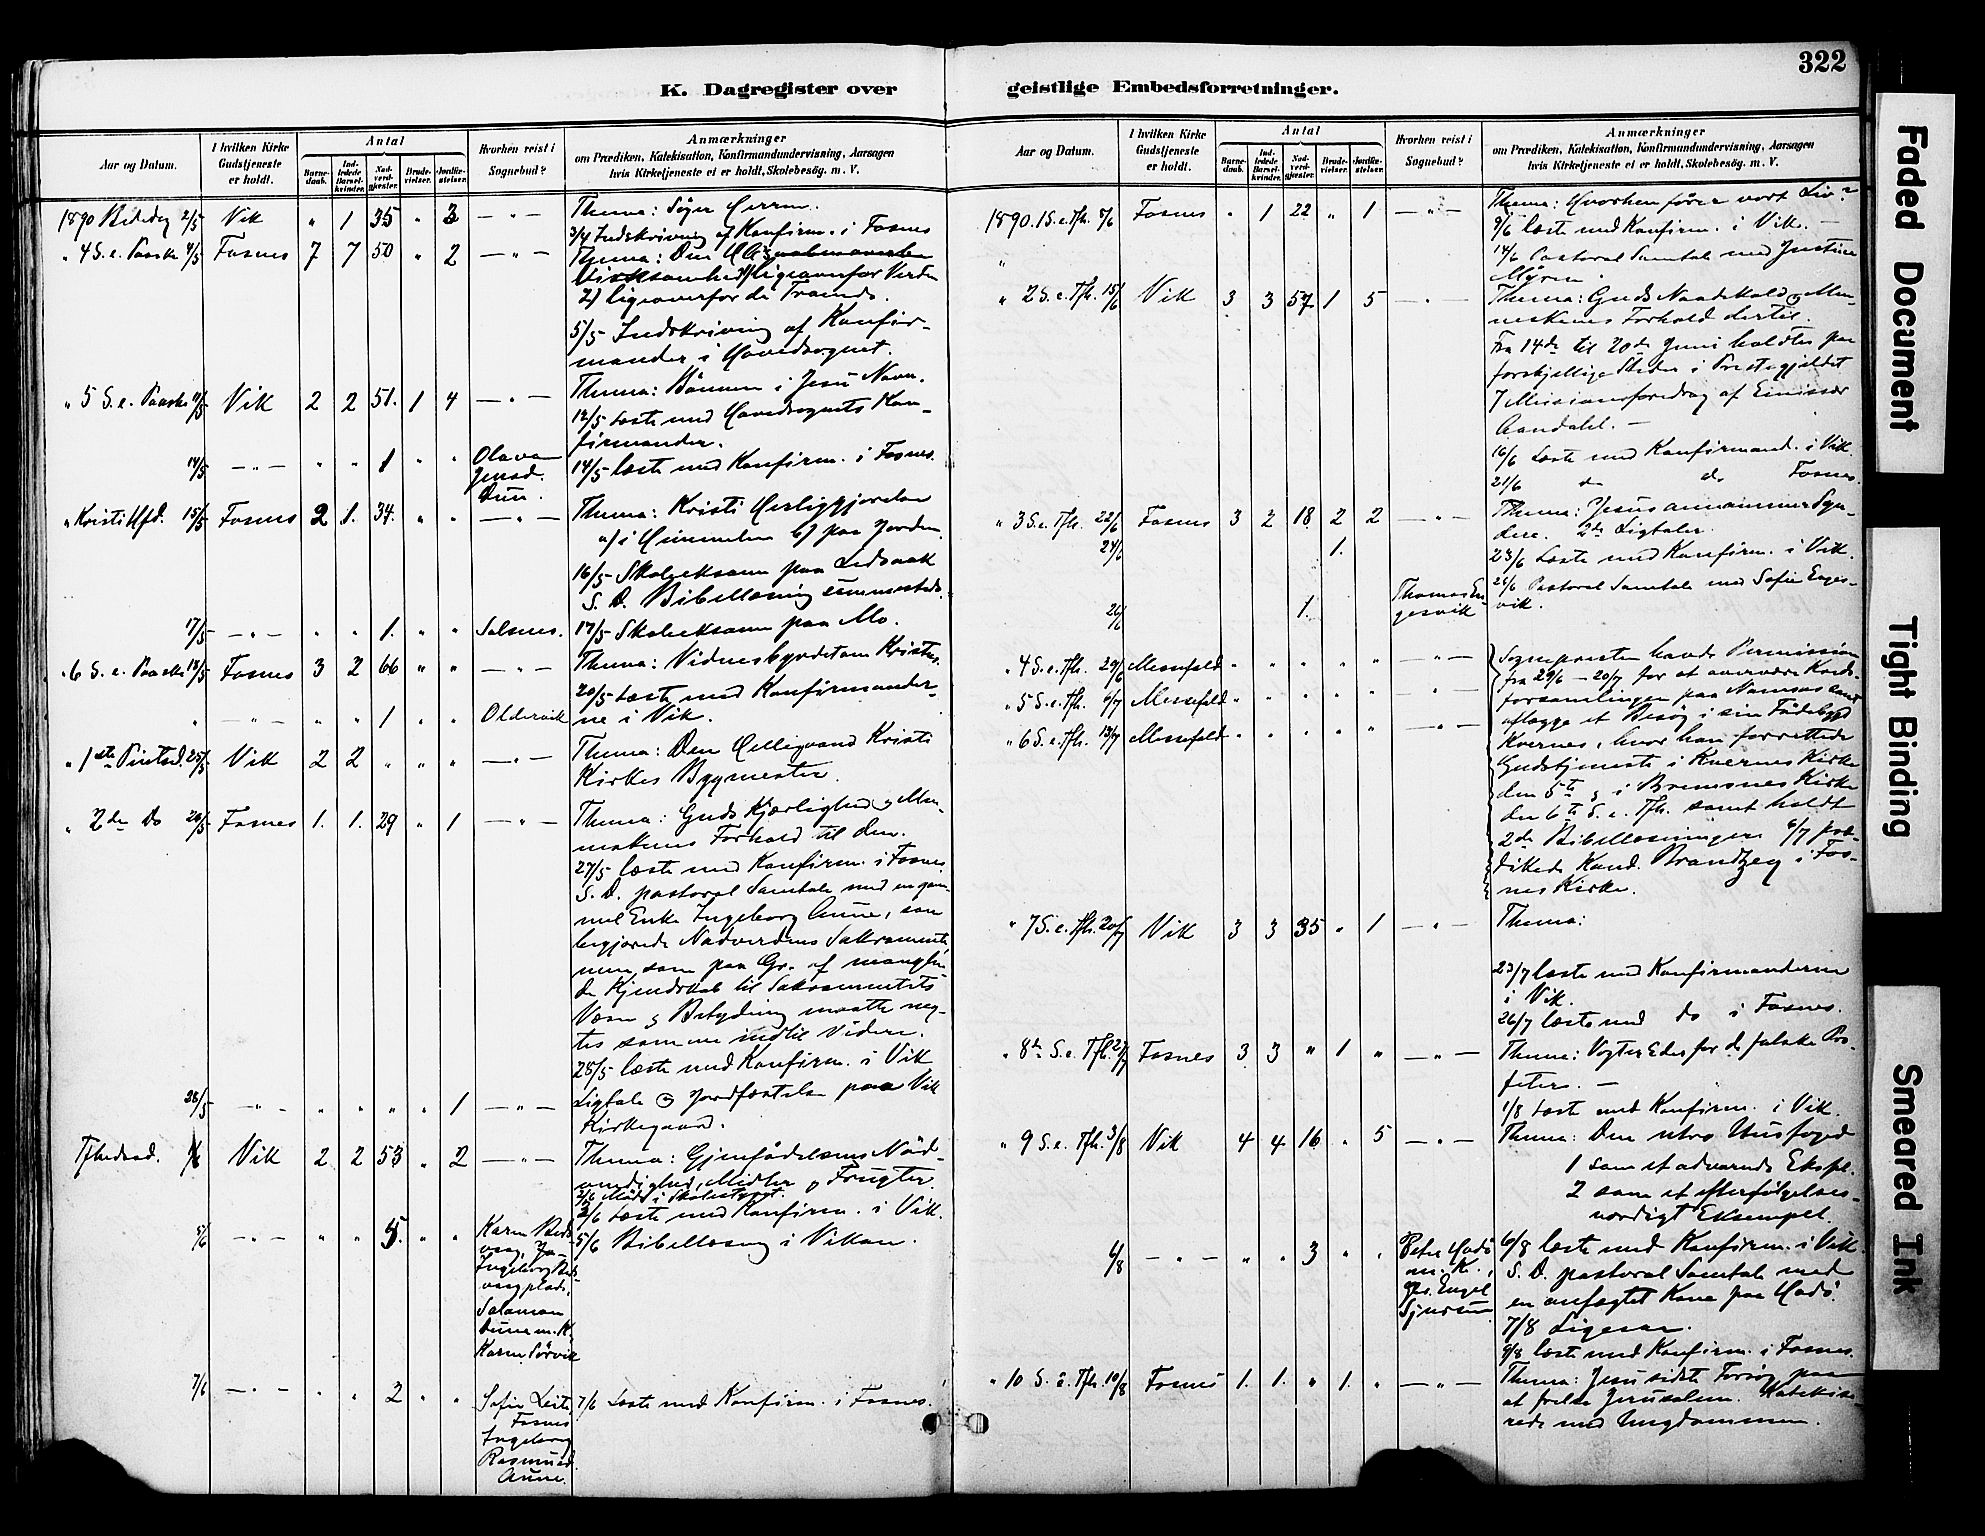 322
K. Dagregister over
geistlige Embedsforretninger.
Aar og Datum.
I hvilken Kirke
Gudstjeneste
er holdt.
Antal
Barne-
daab.
Ind-
ledede
Barsel-
kvinder.
Nad-
verd-
gjester.
Brude-
vielser.
Jordfæ-
stelser.
Hvorhen reist i
Sognebud?
Anmærkninger
om Prædiken, Katekisation, Konfirmandundervisning, Aarsagen
hvis Kirketjeneste ei er holdt, Skolebesøg. m. V.
1890 Bededag 2/5 Vik " 1 35 " 3 — " — Thema: Søger Herren.
3/4 Indskrivning af Konfirm. i Fosnes
" 4 S. e. Paaske 4/5 Fosnes 7 7 50 " 2 — " — Thema: Den
Virksomhed 1) ligeoverfor Verden
2) ligeoverfor de Troende.
5/5 Indskrivning af Konfir-
mander i Hovedsognet.
" 5 S. e. Paaske 11/5 Vik 2 2 51. 1 4 — " — Thema: Bönnen i Jesu Navn.
12/5 Læste med Hovedsognets Kon-
firmander.
14/5 — " — " " 1 " " Olava
Jensd.
Dun.
14/5 læste med Konfirm. i Fosnes.
" Kristi Hfd. 15/5 Fosnes 2 1. 34. " " — " — Thema: Kristi Herliggjørelse
a) i Himmelen b) paa Jorden.
16/5 Skoleeksamen paa Ledsaak
S. D. Bibellæsning sammesteds.
17/5 — " — " " 1. " " Salsnes. 17/5 Skoleeksamen paa Mo.
" 6 S. e. Paaske 18/5 Fosnes 3 2 66 " " — " — Thema: Vidnesbyrdet om Kristus.
20/5 Læste med Konfirmander-
ne i Vik.
" — " — " " 1 " " Oldervik
" 1ste Pintsed. 25/5 Vik 2 2 " " " — " — Thema: Den Helligaand Kristi
Kirkes Bygmester.
" 2den Do 26/5 Fosnes 1. 1. 29 " 1 — " — Thema: Guds Kjærlighed og Men-
neskenes Forhold til den.
27/5 læste med Konfirm. i Fosnes.
S. D. pastoral Samtale med en gam-
mel Enke Ingeborg Aune, som
begjærede Nadverdens Sakramente,
men som paa Gr. af manglen-
de Kjendskab til Sakramentets
Væsen og Betydning maatte neg-
tes samme indtil Videre.
28/5 læste med Konfirm. i Vik
28/5 — " — " " " " 1 — " — Ligtale og Jordfæstelse paa Vik
Kirkegaard.
Tfhedssd. 1/6 Vik 2 2 53 " 2 — " — Thema: Gjenfødelsens Nød-
vendighed, Midler og Frugter.
2/6 Møde i Skolestyret.
3/6 Læste med Konfirm. i Vik.
5/6 — " — " " 5. " " Karen
Ingeborg
Salamon
Dun m. K.
Karen Sörvik
5/6 Bibellæsning i Vikan.
7/6 — " — " " 2 " " Sofie
Fosnes
Ingeborg
Rasmusd.
Aune.
7/6 Læste med Konfirm. i Fosnes.
Aar og Datum.
I hvilken Kirke
Gudstjeneste
er holdt.
Antal
Barne-
daab.
Ind-
ledede
Barsel-
kvinder.
Nad-
verd-
gjester.
Brude-
vielser.
Jordfæ-
stelser.
Hvorhen reist i
Sognebud?
Anmærkninger
om Prædiken, Katekisation, Konfirmandundervisning, Aarsagen
hvis Kirketjeneste ei er holdt, Skolebesøg. m. V.
1890. 1 S. e. Tfh. 8/6 Fosnes " 1 22 " 1 — " — Thema: Hvorhen fører vort Liv?
9/6 læste med Konfirm. i Vik.
14/6 Pastoral Samtale med Justine
Myren.
" 2 S. e. Tfh. 15/6 Vik 3 3 57 1 5 — " — Thema: Guds Naadekald og Men-
neskenes Forhold dertil.
Fra 14de til 20de Juni holdtes paa
forskjellige Steder i Prestegjeldet
7 Missionsforedrag af Emissær
Aandahl. —
16/6 Læste med Konfirmand. i Vik.
21/6 do do Fosnes.
" 3 S. e. Tfh. 22/6 Fosnes 3 2 18 2 2 — " — Thema: Jesus annammer Syn-
dere. 2de Ligtaler.
24/6 1.
23/6 Læste med Konfirm. i Vik.
26/6 Pastoral Samtale med Sofie Enges-
vik.
26/6 1. Thomas En-
gesvik
" 4 S. e. Tfh. 29/6 Messefald " " " " " — " —
" 5 S. e. Tfh. 6/7 Messefald " " " " " — " —
" 6 S. e. Tfh. 13/7 Messefald " " " " " — " —
Sognepresten havde Permission
fra 29/6 – 20/7 for at overvære Kreds-
forsamlingen paa Namsos samt
aflægge et Besøg i sin Fødebygd
Kvernes, hvor han forrettede
Gudstjeneste i Kvernes Kirke
den 5te og i Bremsnes Kirke
den 6te S. e. Tfh. samt holdt
2de Bibellæsninger. 6/7 præ-
dikede Kand. Brandtzeg i Fos-
nes Kirke.
" 7 S. e. Tfh. 20/7 Vik 3 3 35 " 1 — " — Thema:
23/7 læste med Konfirmanderne
i Vik.
26/7 læste med do i Fosnes.
" 8de S. e. Tfh. 27/7 Fosnes 3 3 " 1 " — " — Thema: Vogter Eder for de falske Pro-
feter. —
1/8 Læste med Konfirm. i Vik.
" 9 S. e. Tfh. 3/8 Vik 4 4 16 " 5 — " — Thema: Den utro Husfoged
1 som et advarende Ekspl.
2 som et efterfølgelses-
værdigt Eksempel.
6/8 — " — " " 3 " " Peter Hodö
m. K.,
Engel
6/8 læste med Konfirm. i Vik.
S. D. pastoral Samtale med
en anfægtet Kone paa Hodö.
7/8 Ligesaa.
9/8 læste med Konfirm. i Fosnes.
" 10 S. e. Tfh. 10/8 Fosnes 1. 1. " 1. " — " — Thema: Jesu sidste Forsøg paa
at frelse Jerusalem. Katekise-
rede med Ungdommen.
Faded Document
Tight Binding
Smeared Ink